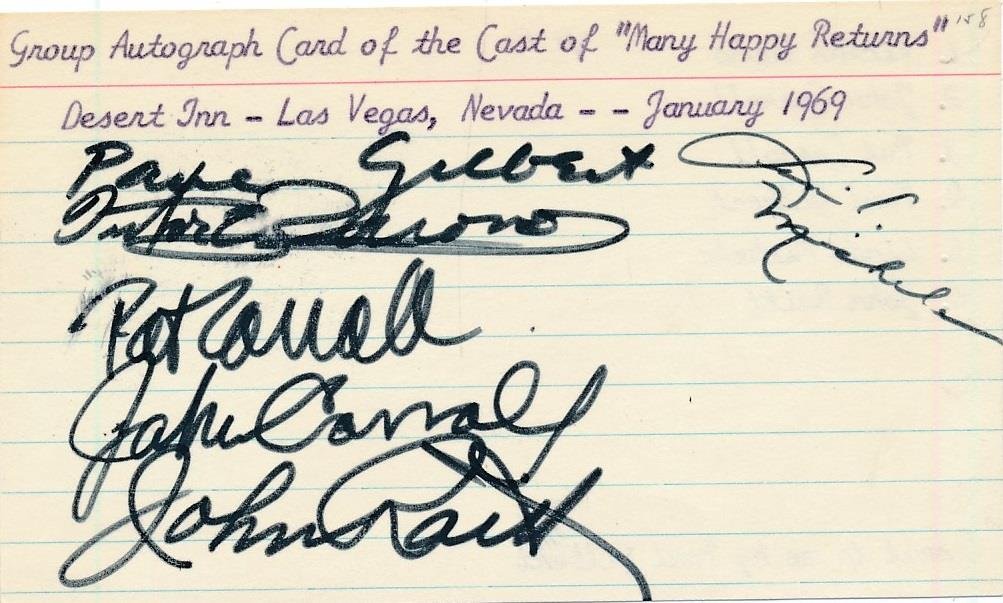 Group Autograph Card of the Cast of "Many Happy Returns"
Desert Inn - Las Vegas, Nevada - - January 1969
Gilbert
Pat Carroll
John Carroll
John Raitt